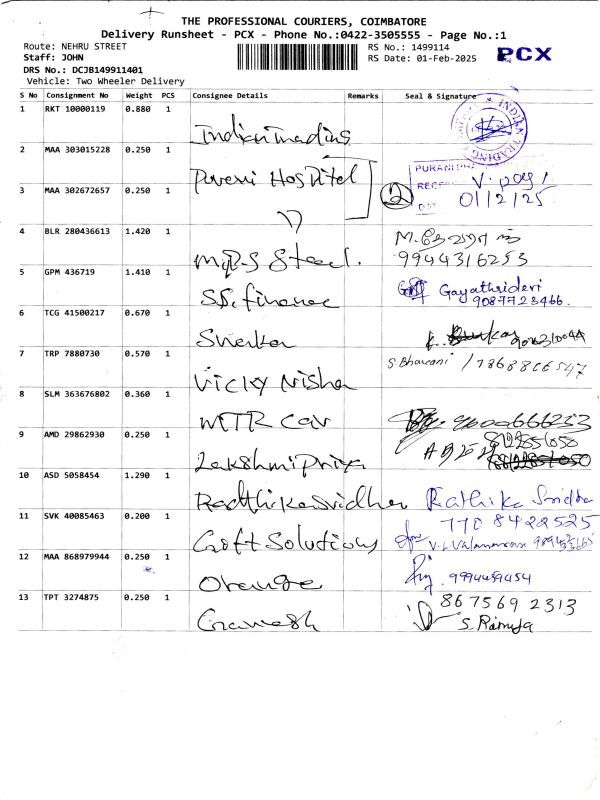 THE PROFESSIONAL COURIERS, COIMBATORE
Delivery Runsheet - PCX - Phone No.:0422-3505555 - Page No.:1
Route: NEHRU STREET
Staff: JOHN
DRS No.: DCJB149911401
Vehicle: Two Wheeler Delivery
RS No.: 1499114
RS Date: 01-Feb-2025
PCX
S No Consignment No Weight PCS Consignee Details Remarks Seal & Signature
1 RKT 10000119 0.880 1
2 MAA 303015228 0.250 1
Hospital
3 MAA 302672657 0.250 1 2 01/2/25
4 BLR 280436613 1.420 1 Steel. 9944316253
5 GPM 436719 1.410 1 S.S. finance Gayathridevi
9087723466.
6 TCG 41500217 0.670 1
7 TRP 7880730 0.570 1 Vicky Nisha S Bhavani / 7868866547
8 SLM 363676802 0.360 1 MTR Car 9600666253
9 AMD 29862930 0.250 1 Lakshmi Priya
10 ASD 5058454 1.290 1 Radthikasridhar Rathika Sridha
7708422525
11 SVK 40085463 0.200 1 Croft Solutions
12 MAA 868979944 0.250 1 Orange 9994459454
13 TPT 3274875 0.250 1 Ganesh 8675692313
S. Ramya